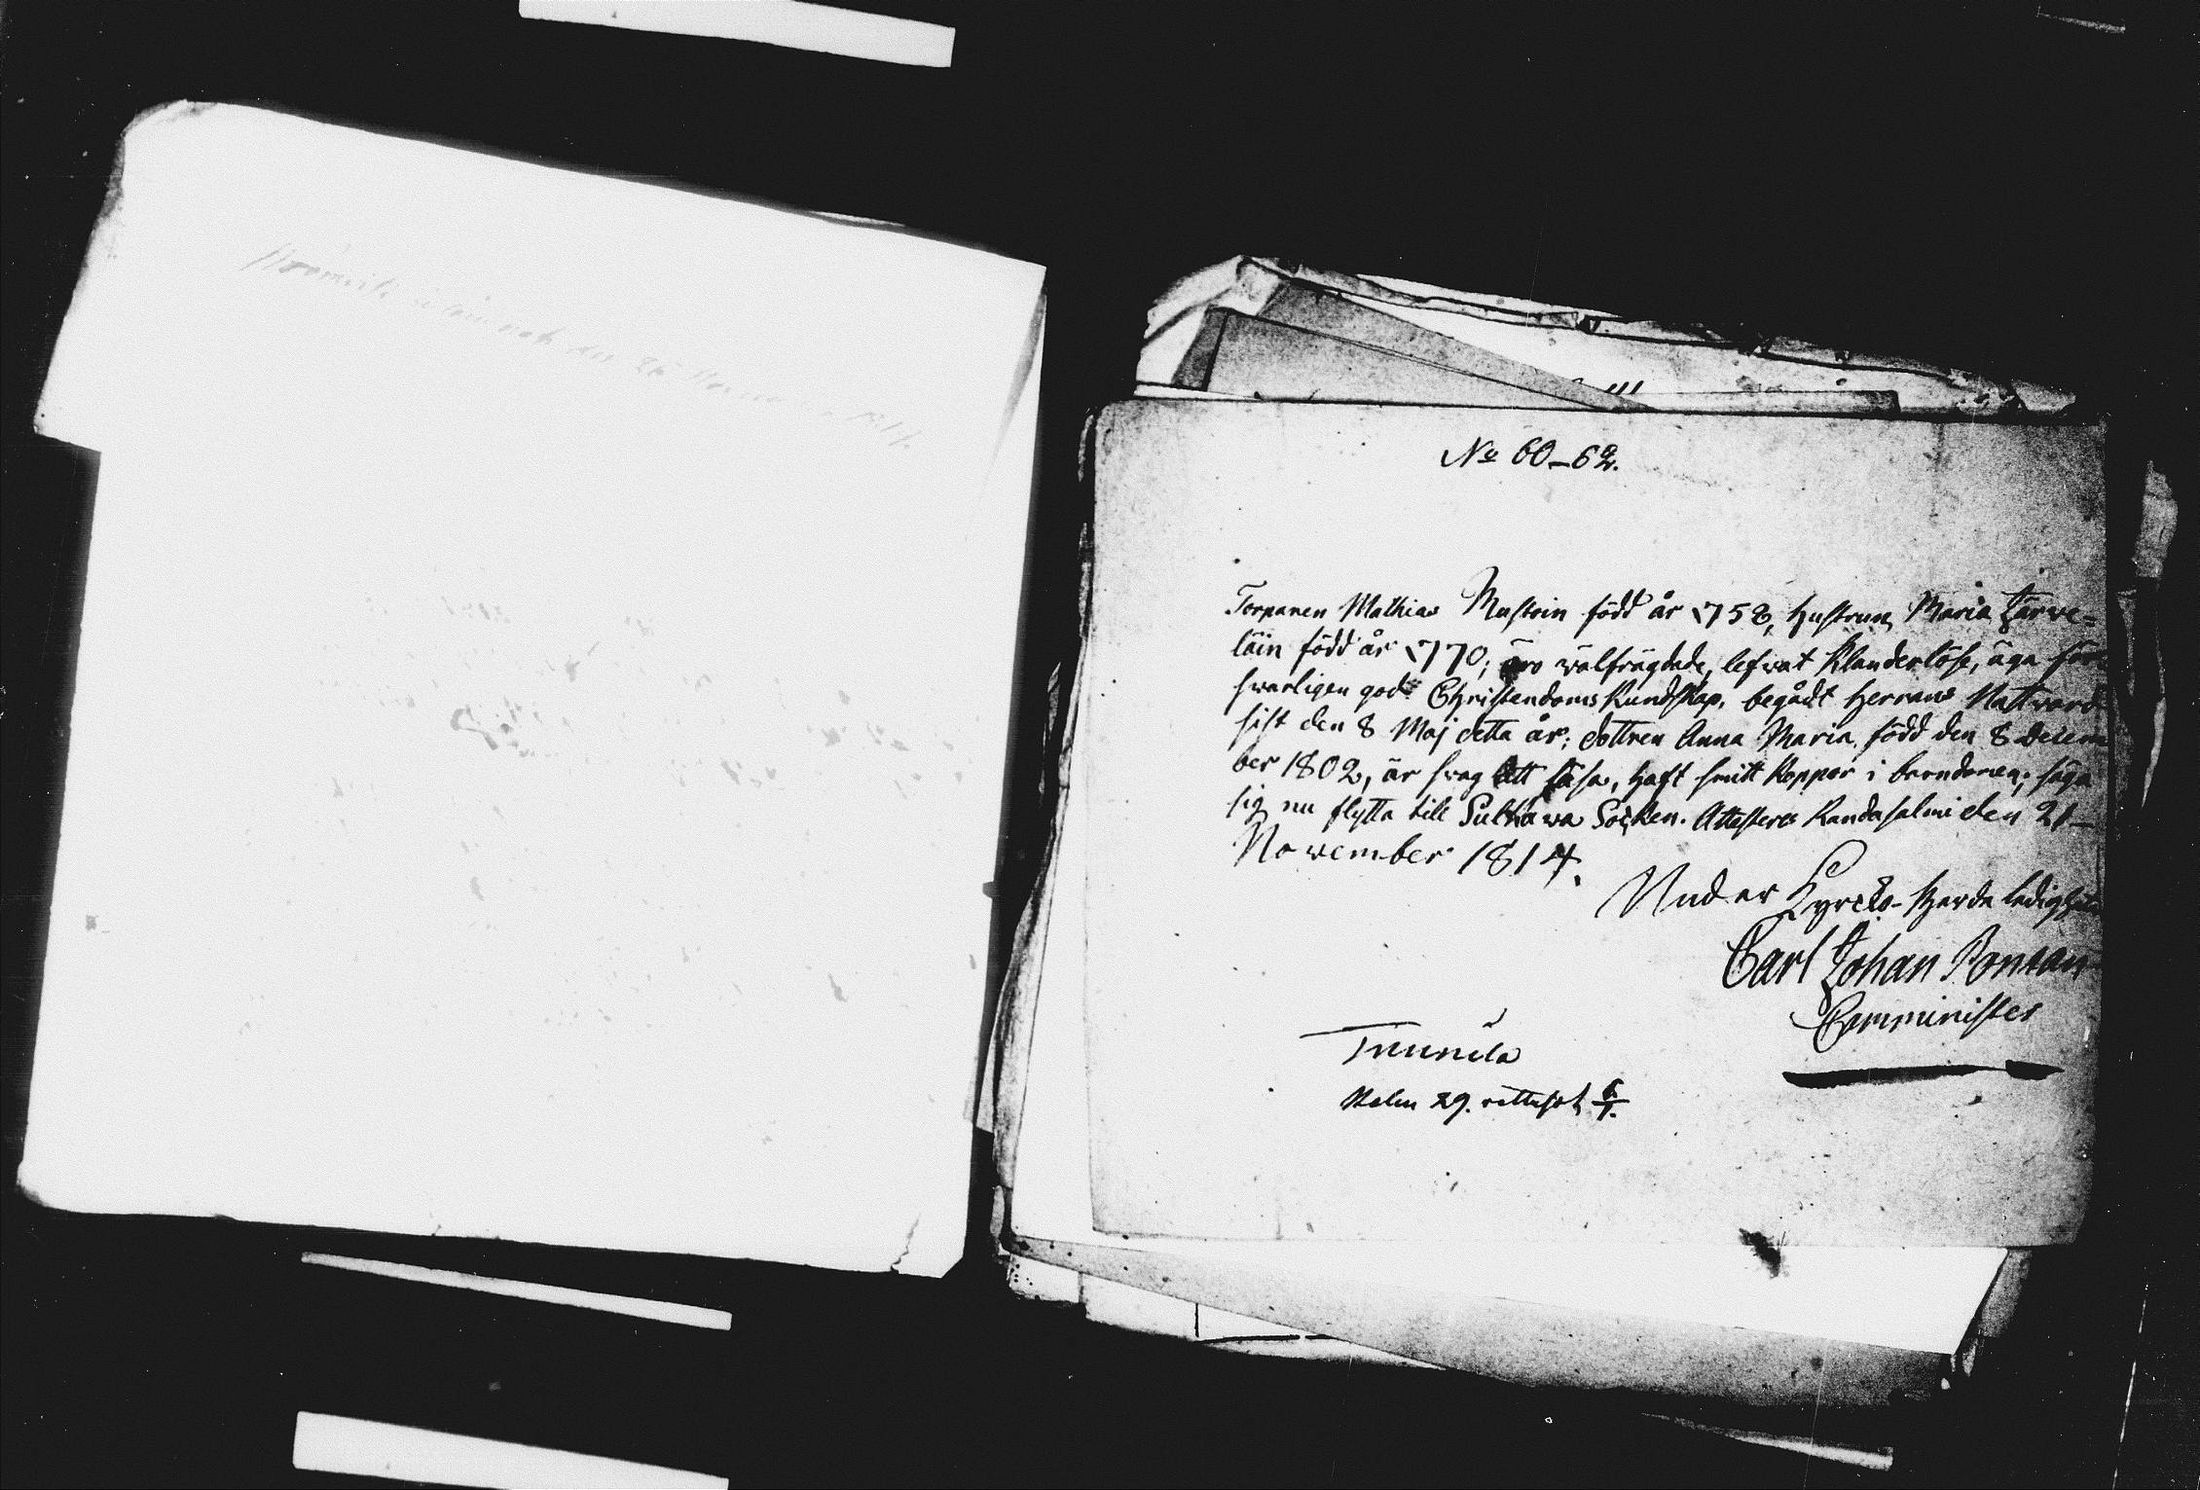 No 60-62.
Torparen Mathias Mustoin född år 1758, Hustrun Maria Tärwe=
läin född år 1770; äro wälfrägdade, lefwat Klanderlöse, äga för
swarligen god Christendoms Kundskap, begådt Herrans Nattward
sist den 8 Maj detta år; dottren Anna Maria född den 8 Decem
ber 1802, är swag att läsa, haft smitt Koppor i barndomen; säga
sig nu flytta till Sulkawa Socken. Attesteras Randasalmi den 21
November 1814.
Under Kyrcko-Herde ledighet
Carl Johan Pontan
Comminister
29.